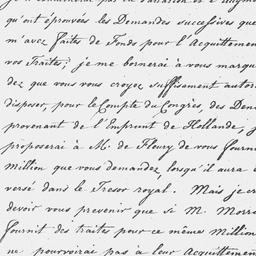 qu'ont éprouvées les Demandes successives que
m'avez faites de Fonds pour l'Acquittemen
vos Traites; je me bornerai à vous marqu
dez que vous vous croyez suffisamment autor
disposer, pour le Compte du Congrès, des Den
provenant de l'Emprunt de Hollande, j
proposerai à M. de Fleury de vous fourn
million que vous demandez, lorsqu'il aura é
versé dans le Tresor royal. Mais je cr
devoir vous prevenir que si M. Morr
fournit des traites pour ce même million
ne pourvoirai pas à leur Acquittemen